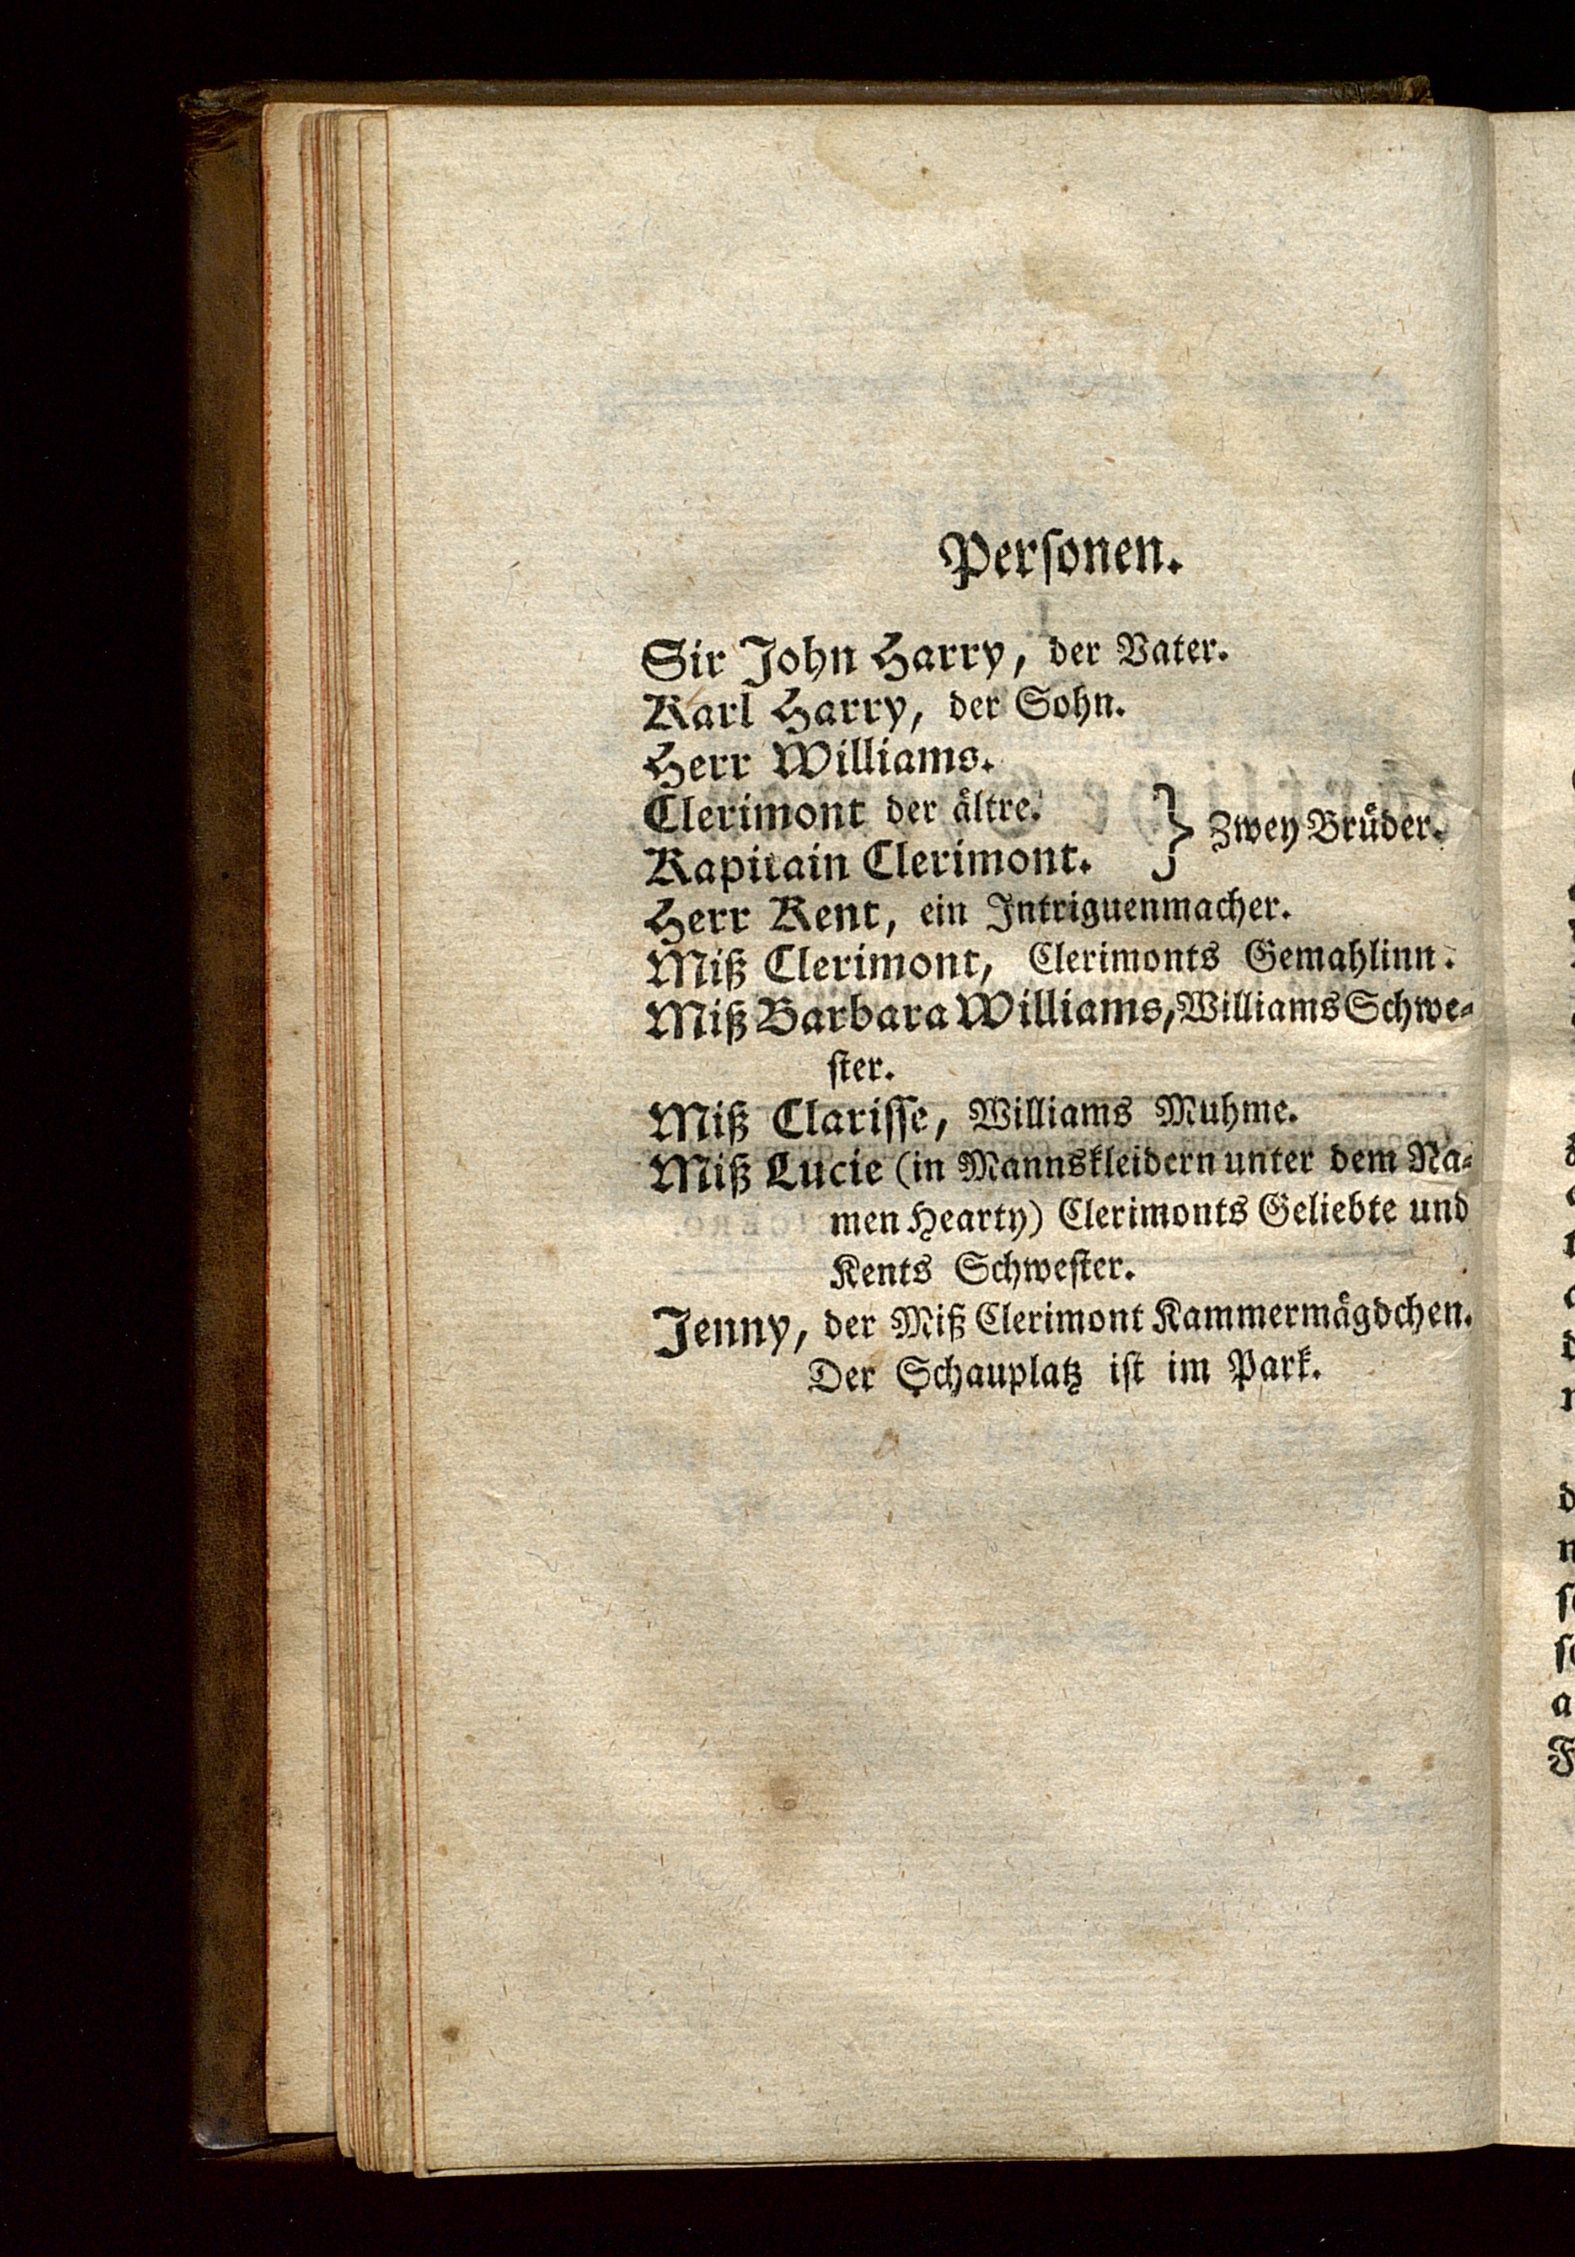 Personen.
Sir John Harry, der Vater.
Karl Harry, der Sohn.
Herr Williams.
Clerimont der ältre.
Kapitain Clerimont.
} Zwey Brüder.
Herr Kent, ein Intriguenmacher.
Miß Clerimont, Clerimonts Gemahlinn.
Miß Barbara Williams, Williams Schwe⸗
ſter.
Miß Clariſſe, Williams Muhme.
Miß Lucie (in Mannskleidern unter dem Na⸗
men Hearty) Clerimonts Geliebte und
Kents Schweſter.
Jenny, der Miß Clerimont Kammermägdchen.
Der Schauplatz iſt im Park.